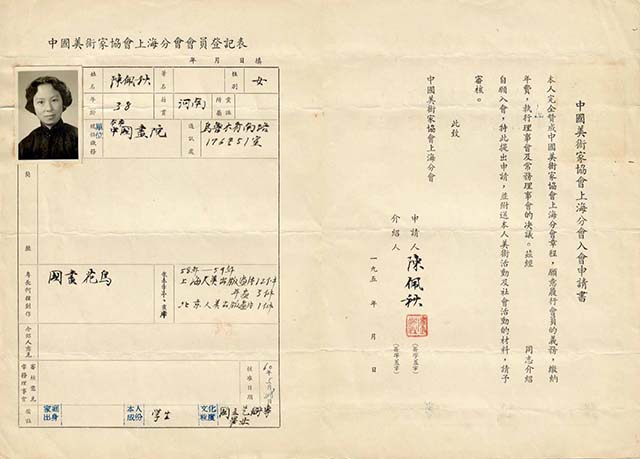 中國美術家協會上海分會會員登記表
年 月 日 填
姓名 陳佩秋 筆名 性別 女
年齡 38 籍貫 河南 黨派
單位 中國畫院 通訊處
簡
歷
專長何種創作 國畫花鳥
58年—59年
介紹人意見
審核意見
常務理事會
批准日期 60年
備註
家庭出身 本人成份 學生 文化程度
中國美術家協會上海分會入會申請書
本人完全贊成中國美術家協會上海分會章程，願意履行會員的義務，繳納
年費，執行理事會及常務理事會的決議。茲經 同志介紹
自願入會，特此提出申請，並附送本人美術活動及社會活動的材料，請予
審核。
此致
中國美術家協會上海分會
申請人 陳佩秋 (簽字蓋章)
介紹人 (簽字蓋章)
一九五 年 月 日